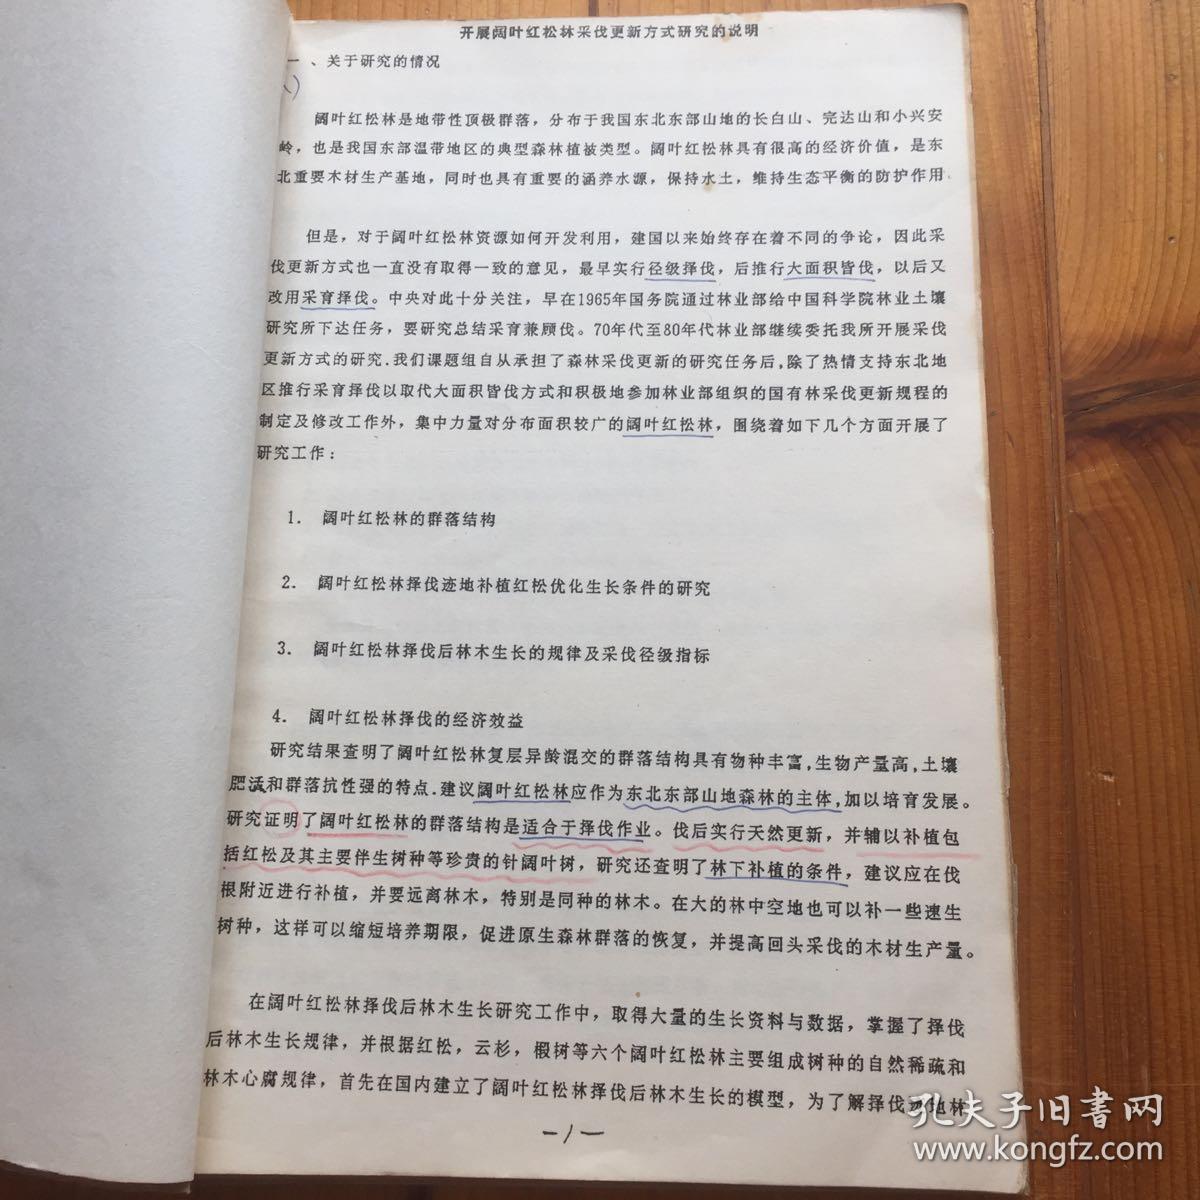 开展阔叶红松林采伐更新方式研究的说明
一、关于研究的情况
阔叶红松林是地带性顶极群落，分布于我国东北东部山地的长白山、完达山和小兴安
岭，也是我国东部温带地区的典型森林植被类型。阔叶红松林具有很高的经济价值，是东
北重要木材生产基地，同时也具有重要的涵养水源，保持水土，维持生态平衡的防护作用
但是，对于阔叶红松林资源如何开发利用，建国以来始终存在着不同的争论，因此采
伐更新方式也一直没有取得一致的意见，最早实行径级择伐，后推行大面积皆伐，以后又
改用采育择伐。中央对此十分关注，早在1965年国务院通过林业部给中国科学院林业土壤
研究所下达任务，要研究总结采育兼顾伐。70年代至80年代林业部继续委托我所开展采伐
更新方式的研究.我们课题组自从承担了森林采伐更新的研究任务后,除了热情支持东北地
区推行采育择伐以取代大面积皆伐方式和积极地参加林业部组织的国有林采伐更新规程的
制定及修改工作外，集中力量对分布面积较广的阔叶红松林，围绕着如下几个方面开展了
研究工作：
1. 阔叶红松林的群落结构
2. 阔叶红松林择伐迹地补植红松优化生长条件的研究
3. 阔叶红松林择伐后林木生长的规律及采伐径级指标
4. 阔叶红松林择伐的经济效益
研究结果查明了阔叶红松林复层异龄混交的群落结构具有物种丰富,生物产量高,土壤
肥沃和群落抗性强的特点.建议阔叶红松林应作为东北东部山地森林的主体,加以培育发展。
研究证明了阔叶红松林的群落结构是适合于择伐作业。伐后实行天然更新，并辅以补植包
括红松及其主要伴生树种等珍贵的针阔叶树，研究还查明了林下补植的条件，建议应在伐
根附近进行补植，并要远离林木，特别是同种的林木。在大的林中空地也可以补一些速生
树种，这样可以缩短培养期限，促进原生森林群落的恢复，并提高回头采伐的木材生产量。
在阔叶红松林择伐后林木生长研究工作中，取得大量的生长资料与数据，掌握了择伐
后林木生长规律，并根据红松，云杉，椴树等六个阔叶红松林主要组成树种的自然稀疏和
林木心腐规律，首先在国内建立了阔叶红松林择伐后林木生长的模型，为了解择伐迹地林
－1－
孔夫子旧书网
www.kongfz.com